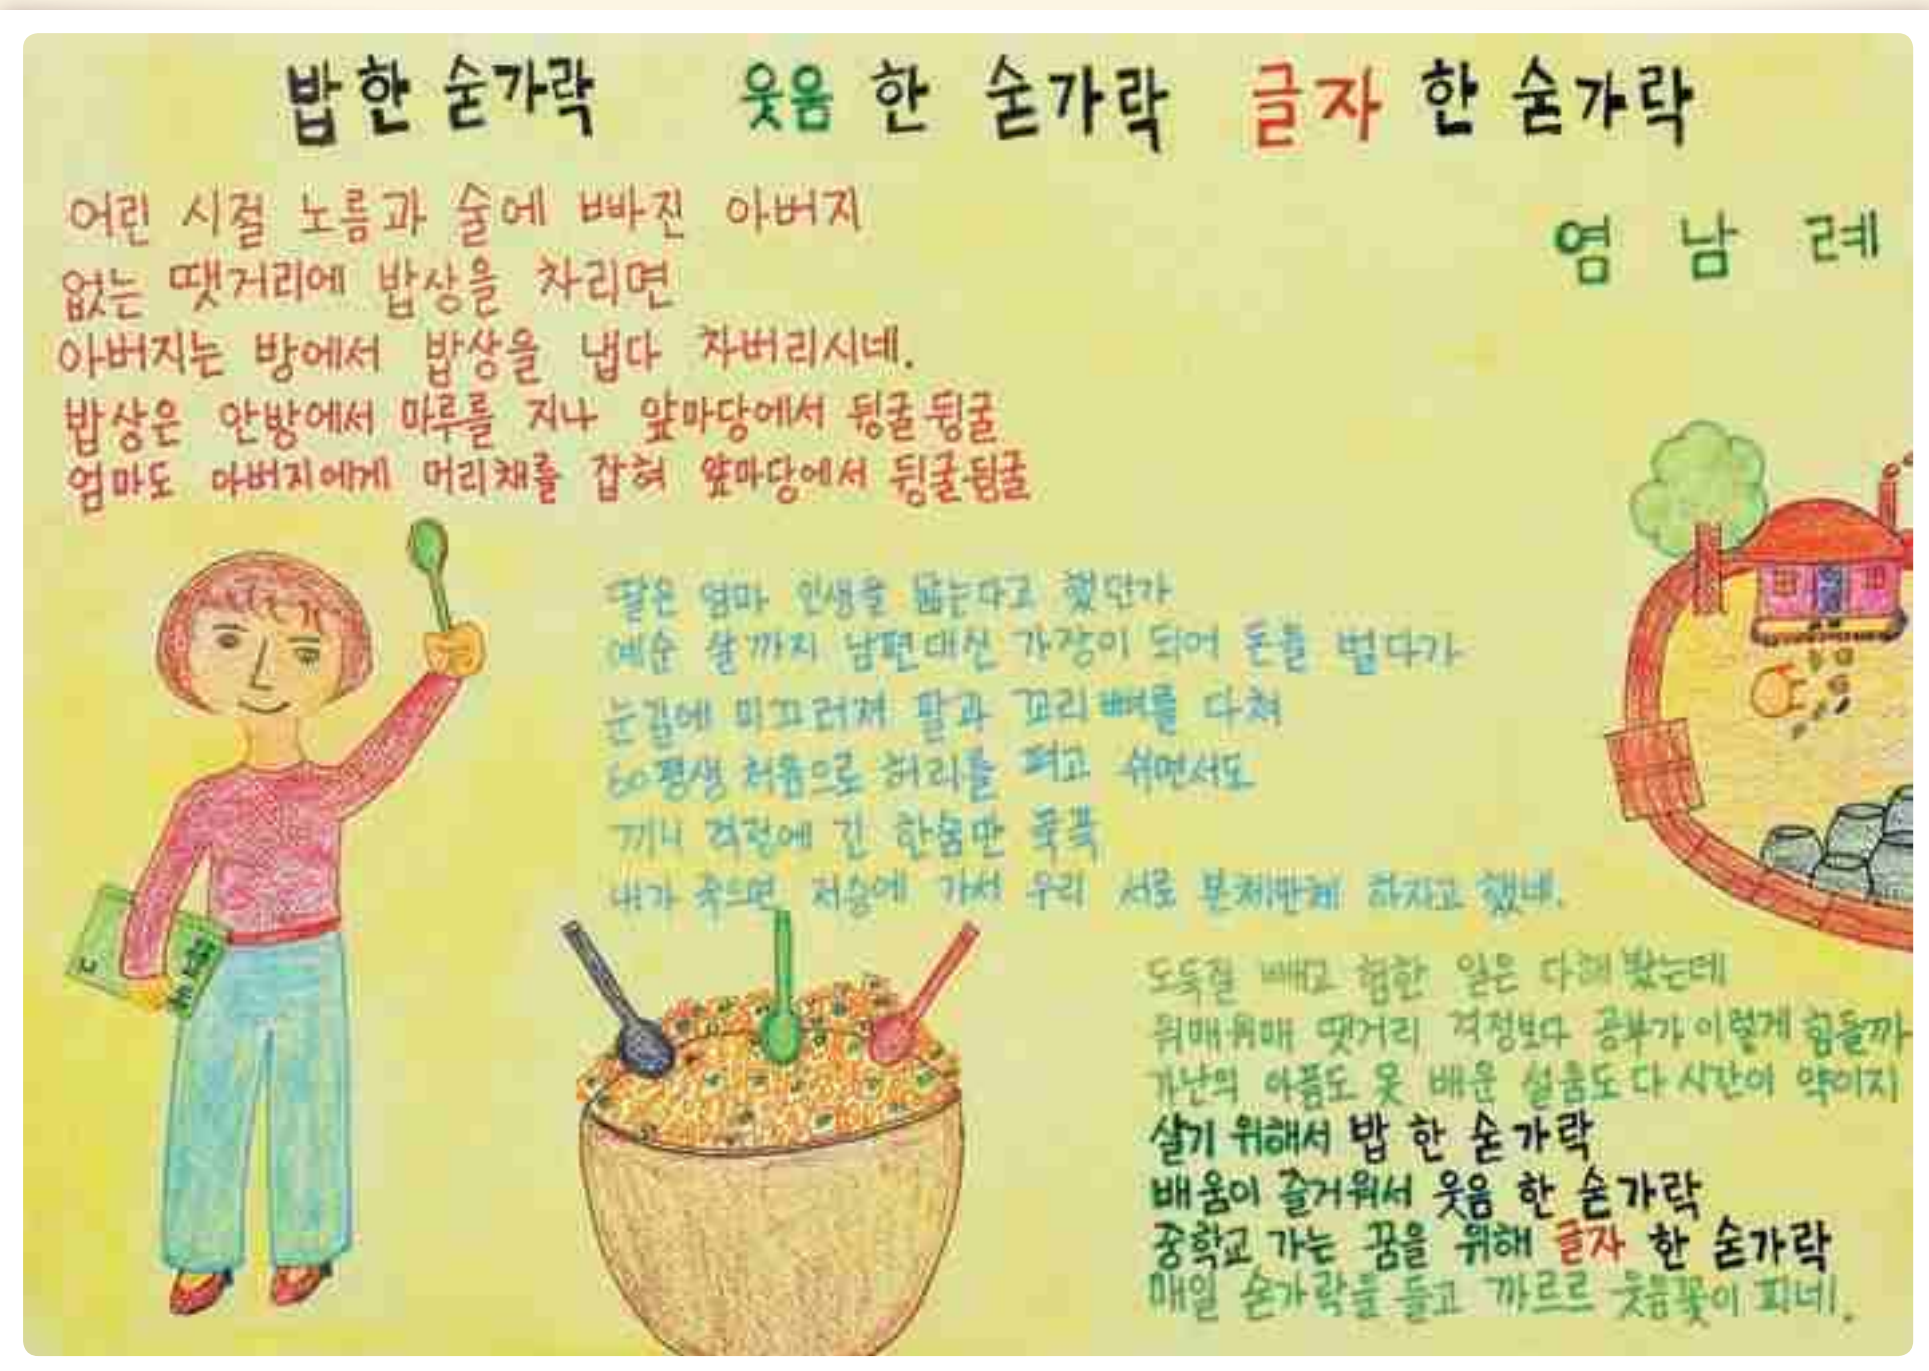 밥 한 숟가락 웃음 한 숟가락 글자 한 숟가락
염 남 례
어린 시절 노름과 술에 빠진 아버지
없는 땟거리에 밥상을 차리면
아버지는 방에서 밥상을 냅다 차버리시네.
밥상은 안방에서 마루를 지나 앞마당에서 뒹굴뒹굴
엄마도 아버지에게 머리채를 잡혀 앞마당에서 뒹굴뒹굴
딸은 엄마 인생을 닮는다고 했던가
예순 살까지 남편대신 가장이 되어 돈을 벌다가
눈길에 미끄러져 팔과 꼬리뼈를 다쳐
60평생 처음으로 허리를 펴고 쉬면서도
끼니 걱정에 긴 한숨만 푹푹
내가 죽으면 저승에 가서 우리 서로 본체만체 하자고 했네.
도둑질 빼고 험한 일은 다해 봤는데
워매워매 땟거리 걱정보다 공부가 이렇게 힘들까
가난의 아픔도 못 배운 설움도 다 시간이 약이지
살기 위해서 밥 한 숟가락
배움이 즐거워서 웃음 한 숟가락
중학교 가는 꿈을 위해 글자 한 숟가락
매일 숟가락을 들고 까르르 웃음꽃이 피네.